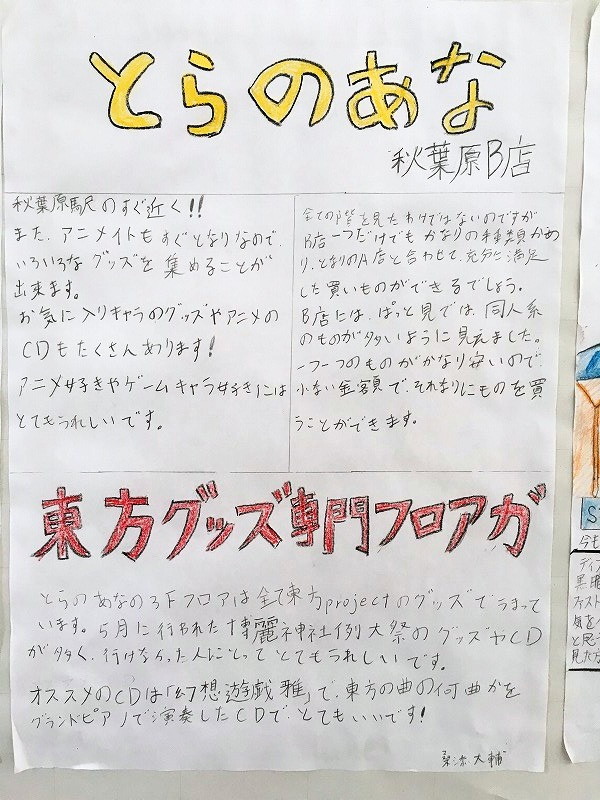 とらのあな
秋葉原B店
秋葉原駅のすぐ近く!!
また、アニメイトもすぐとなりなので、
いろいろなグッズを集めることが
出来ます。
お気に入りキャラのグッズやアニメの
CDもたくさんあります!
アニメ好きやゲームキャラ好きには
とてもうれしいです。
全ての階を見たわけではないのですが
B店一つだけでもかなりの種類があ
り、となりのA店と合わせて、充分に満足
した買いものができるでしょう。
B店には、ぱっと見では、同人系
のものが多いように見えました。
一つ一つのものがかなり安いので、
小ない金額で、それなりにものを買
うことができます。
東方グッズ専門フロアが
とらのあなの3Fフロアは全て東方projectのグッズでうまって
います。5月に行われた博麗神社例大祭のグッズやCD
が多く、行けなかった人にとってとてもうれしいです。
オススメのCDは「幻想遊戯雅」で、東方の曲の何曲かを
グランドピアノで演奏したCDで、とてもいいです!
大輔
今も
ディズ
黒曜
気を
と思う
見た方